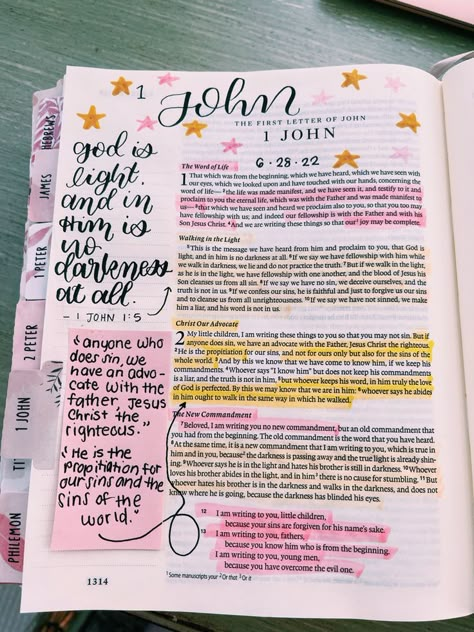 1 John
THE FIRST LETTER OF JOHN
1 JOHN
6·28·22
god is
light,
and in
Him is
no
darkness
at all.
- 1 JOHN 1:5
"anyone who
does sin, we
have an advo-
cate with the
father, Jesus
Christ the
righteous."
"He is the
propitation for
our sins and the
sins of the
world."
HEBREWS
JAMES
1 PETER
2 PETER
1 JOHN
TI
PHILEMON
The Word of Life
1 That which was from the beginning, which we have heard, which we have seen with
our eyes, which we looked upon and have touched with our hands, concerning the
word of life— ² the life was made manifest, and we have seen it, and testify to it and
proclaim to you the eternal life, which was with the Father and was made manifest to
us— ³ that which we have seen and heard we proclaim also to you, so that you too may
have fellowship with us; and indeed our fellowship is with the Father and with his
Son Jesus Christ. ⁴ And we are writing these things so that our¹ joy may be complete.
Walking in the Light
⁵ This is the message we have heard from him and proclaim to you, that God is
light, and in him is no darkness at all. ⁶ If we say we have fellowship with him while
we walk in darkness, we lie and do not practice the truth. ⁷ But if we walk in the light,
as he is in the light, we have fellowship with one another, and the blood of Jesus his
Son cleanses us from all sin. ⁸ If we say we have no sin, we deceive ourselves, and the
truth is not in us. ⁹ If we confess our sins, he is faithful and just to forgive us our sins
and to cleanse us from all unrighteousness. ¹⁰ If we say we have not sinned, we make
him a liar, and his word is not in us.
Christ Our Advocate
2 My little children, I am writing these things to you so that you may not sin. But if
anyone does sin, we have an advocate with the Father, Jesus Christ the righteous.
² He is the propitiation for our sins, and not for ours only but also for the sins of the
whole world. ³ And by this we know that we have come to know him, if we keep his
commandments. ⁴ Whoever says "I know him" but does not keep his commandments
is a liar, and the truth is not in him, ⁵ but whoever keeps his word, in him truly the love
of God is perfected. By this we may know that we are in him: ⁶ whoever says he abides
in him ought to walk in the same way in which he walked.
The New Commandment
⁷ Beloved, I am writing you no new commandment, but an old commandment that
you had from the beginning. The old commandment is the word that you have heard.
⁸ At the same time, it is a new commandment that I am writing to you, which is true in
him and in you, because² the darkness is passing away and the true light is already shin-
ing. ⁹ Whoever says he is in the light and hates his brother is still in darkness. ¹⁰ Whoever
loves his brother abides in the light, and in him³ there is no cause for stumbling. ¹¹ But
whoever hates his brother is in the darkness and walks in the darkness, and does not
know where he is going, because the darkness has blinded his eyes.
12 I am writing to you, little children,
because your sins are forgiven for his name's sake.
13 I am writing to you, fathers,
because you know him who is from the beginning.
I am writing to you, young men,
because you have overcome the evil one.
1314
1 Some manuscripts your 2 Or that 3 Or it